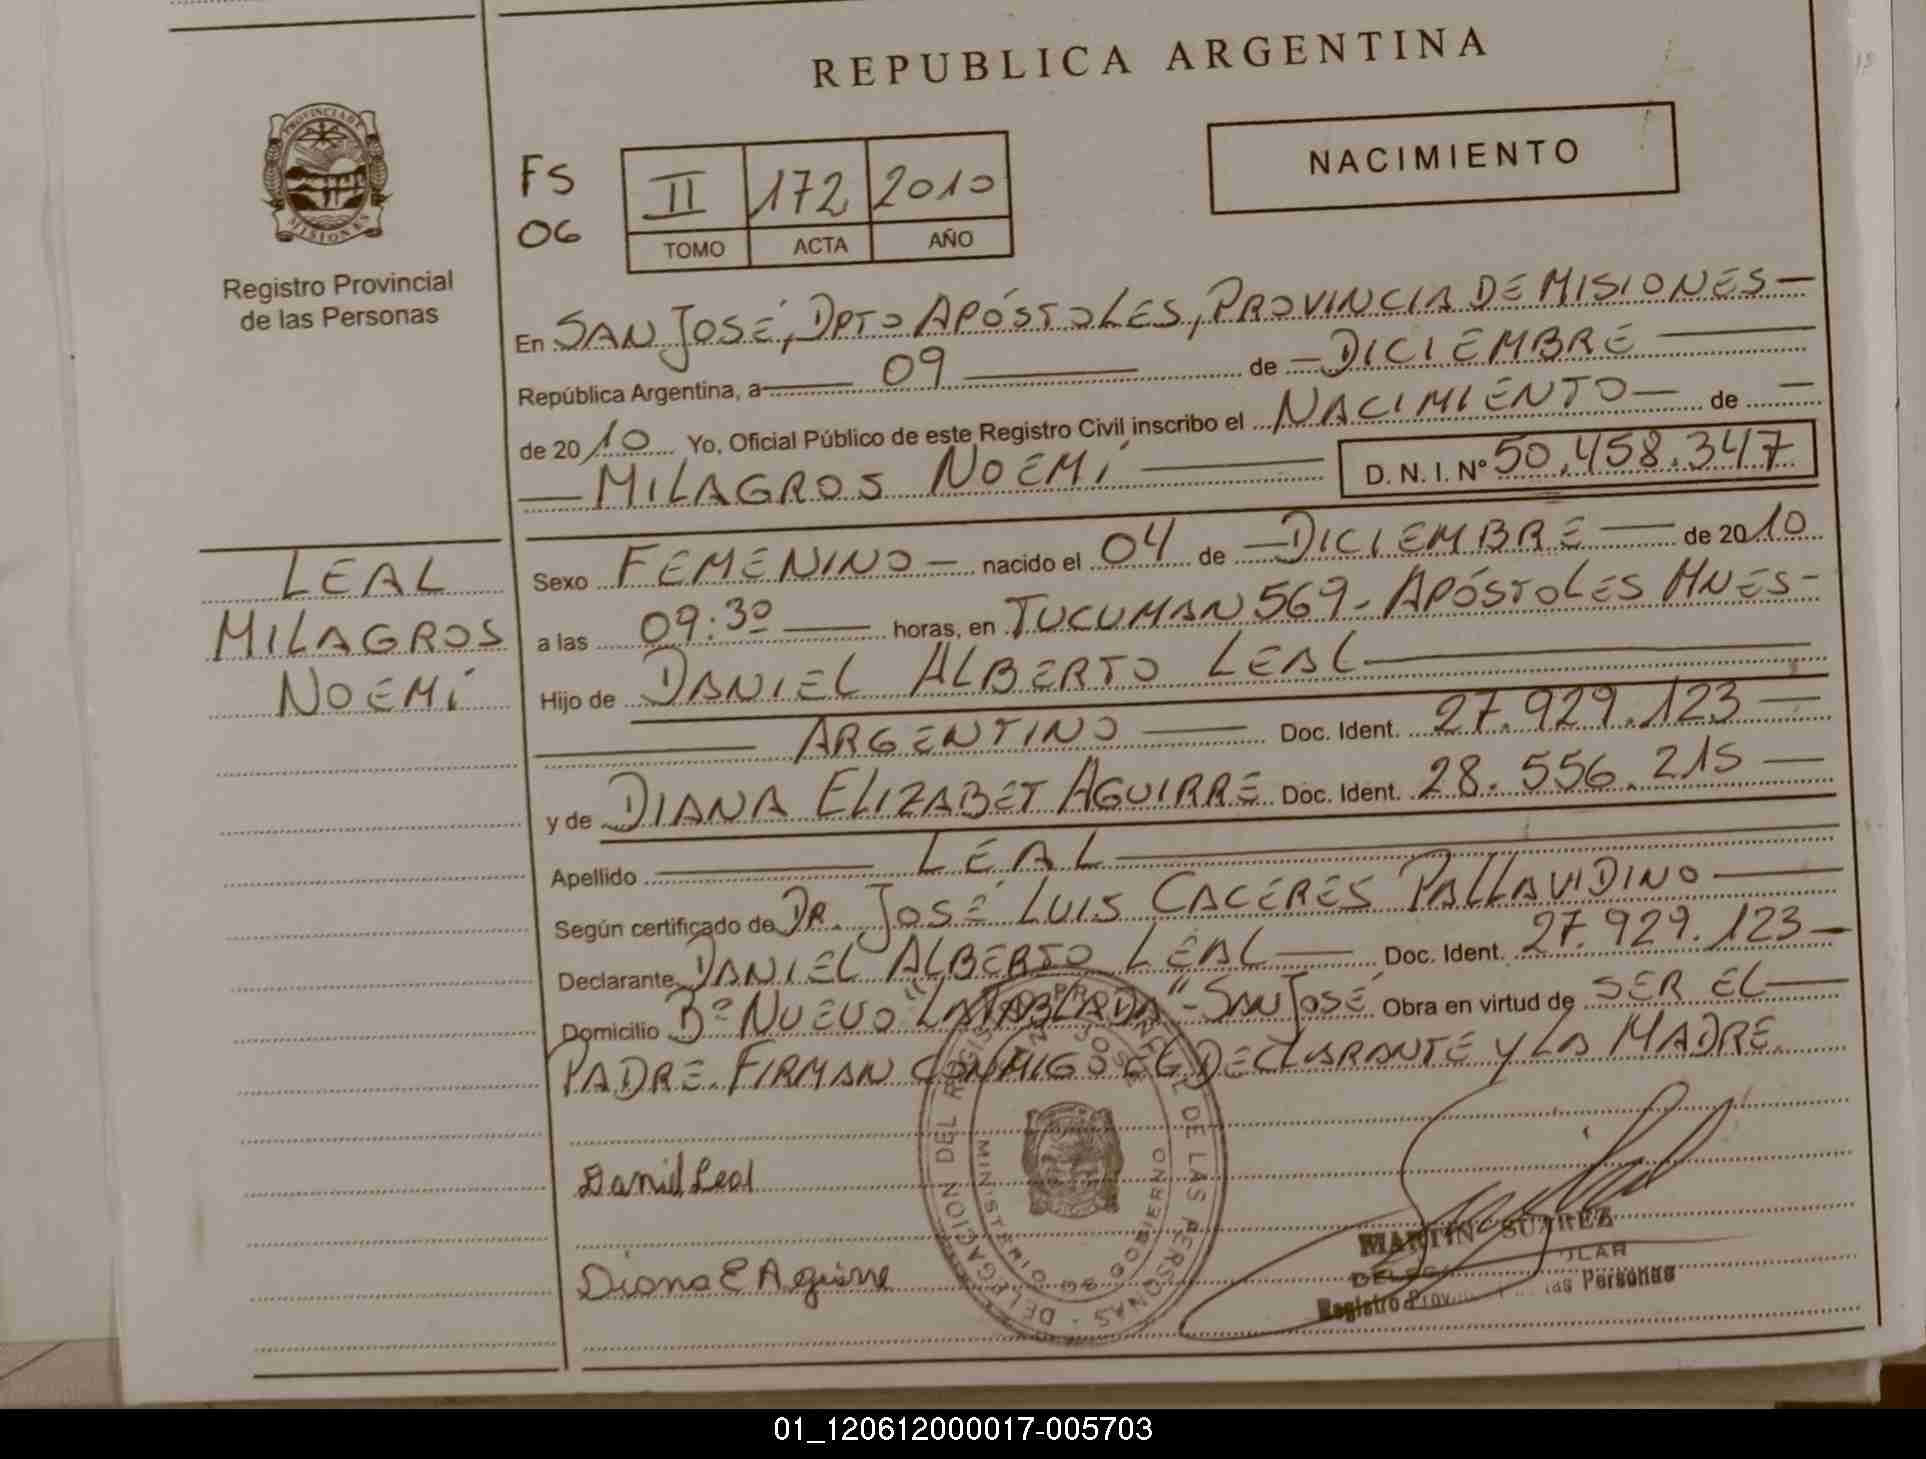 REPUBLICA ARGENTINA
PROVINCIA DE
MISIONES
Registro Provincial
de las Personas
NACIMIENTO
FS
06
II 172 2010
TOMO ACTA AÑO
En SAN JOSÉ, DPTO APÓSTOLES, PROVINCIA DE MISIONES —
República Argentina, a — 09 — de — DICIEMBRE —
de 20 10 Yo, Oficial Público de este Registro Civil inscribo el NACIMIENTO — de —
— MILAGROS NOEMÍ — D. N. I. Nº 50.458.347
LEAL
MILAGROS
NOEMÍ
Sexo FEMENINO — nacido el 04 de — DICIEMBRE — de 20 10
a las 09:30 — horas, en TUCUMAN 569 - APÓSTOLES MNES -
Hijo de DANIEL ALBERTO LEAL —
— ARGENTINO — Doc. Ident. 27.929.123 —
y de DIANA ELIZABET AGUIRRE Doc. Ident. 28.556.215 —
Apellido — LEAL —
Según certificado de DR. JOSÉ LUIS CACERES PALLAVIDINO —
Declarante DANIEL ALBERTO LEAL — Doc. Ident. 27.929.123 —
Domicilio Bº NUEVO "LA TABLADA" - SAN JOSÉ Obra en virtud de SER EL —
PADRE. FIRMAN CONMIGO EL DECLARANTE Y LA MADRE.
Daniel Leal
Diana E Aguirre
DELEGACION DEL REGISTRO DE LAS PERSONAS
SAN JOSE
MINISTERIO DE GOBIERNO
MARTIN SUAREZ
Registro las Personas
01_120612000017-005703